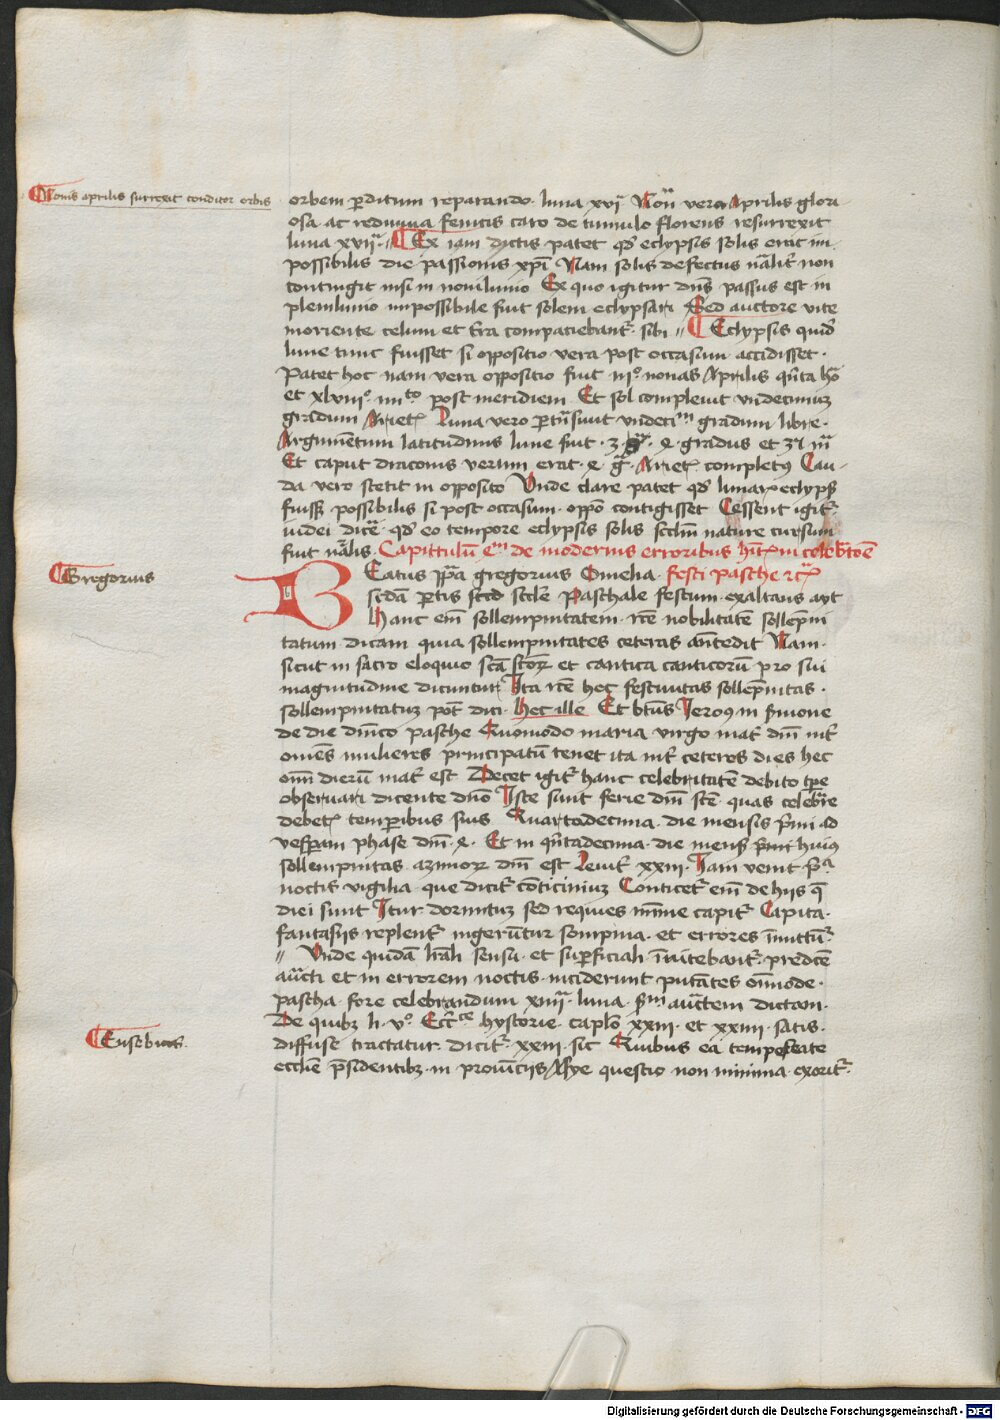 Nonis aprilis surrexit conditor orbis
orbem p̄ditum reparando. luna xvij Non̄ vero Aprilis glori
osa ac rediuiua fenicis caro de tumulo florens resurrexit
luna xvij. Ex iam dictis patet qd̄ eclypsis solis erat im
possibilis die passionis xp̄i Nam solis defectus nālit̄ non
contingit nisi in nouilunio Ex quo igitur dn̄s passus est in
plenilunio impossibile fuit solem eclypsari Sed auctore vite
moriente celum et t̄ra compatiebant̄ sibi Eclypsis quid̄
lune tunc fuisset si oppositio vera post occasum accidisset.
Patet hoc nam vera oppositio fuit iiiº nonas Aprilis qn̄ta ho
et xlviiiº post meridiem Et sol compleuit vndecimum
gradum Ariet̄ Luna vero gradum libre.
Argumentum latitudinis lune fuit gradus et
Et caput draconis verum erat Ariet̄ completꝰ Cau
da vero stetit in opposito Vnde clare patet qd̄ lunar̄ eclyps̄
fuiss̄ possibilis si post occasum oppō contigisset Cessent igit̄
iudei dicē qd̄ eo tempore eclypsis solis scd̄m nature cursum
fuit nālis. Capittulū de modernis erroribus in celebrāc̄oe
Gregorius
Beatus pp̄a gregorius Omelia festi pasche
scd̄a p̄tis Paschale festum exaltans ayt
Hanc em̄ sollempnitatem rc̄e nobilitatē sollēpni
tatum dicam quia sollempnitates ceteras antēdit Nam
sicut in sacro eloquio sc̄a sc̄toꝝ et cantica canticorū pro sui
magnitudine dicuntur Ita rc̄e hec festiuitas sollēpnitas
sollempnitatuꝫ pōt dici. Hec ille Et btūs Ieroꝰ in s̄mone
de die dn̄ico pasche Quomodo maria virgo mat̄ dn̄i int̄
omēs mulieres principatū tenet ita int̄ ceteros dies hec
om̄ dierū mat̄ est Decet igit̄ hanc celebritatē debito tp̄e
obseruari dicente dn̄o Iste sunt ferie dn̄i sc̄e quas celebrare
debet̄ temp̄ibus suis Quartadecima die mensis p̄mi ad
vesp̄am phase dn̄i. Et in qn̄tadecima die mens̄ p̄mi huiꝰ
sollempnitas azimoꝝ dn̄i est Leuit̄ xxiii. Iam venit
noctis vigilia que dicit̄ conticiniuꝫ Conticet̄ em̄ de hijs q̄
diei sunt Itur dormituꝫ sed requies mīme capit̄ Capita
fantasijs replent̄ ingerūtur sompnia et errores īmittūt̄
Vnde quidā lrāli sensu et sup̄ficiali īnitebant̄ predc̄e
aucti et in errorem noctis inciderunt putātes om̄mode
pascha fore celebrandum xiiij luna dictam.
Eusebius
De quibꝫ Ecc̄ce hystorie cap̄lo xxiii et xxiiii satis
diffuse tractatur dicit̄ xxiii sic Quibus ea tempestate
ecclēe p̄sidentibꝫ in prouincijs Asye questio non minima exorit̄.
Digitalisierung gefördert durch die Deutsche Forschungsgemeinschaft - DFG